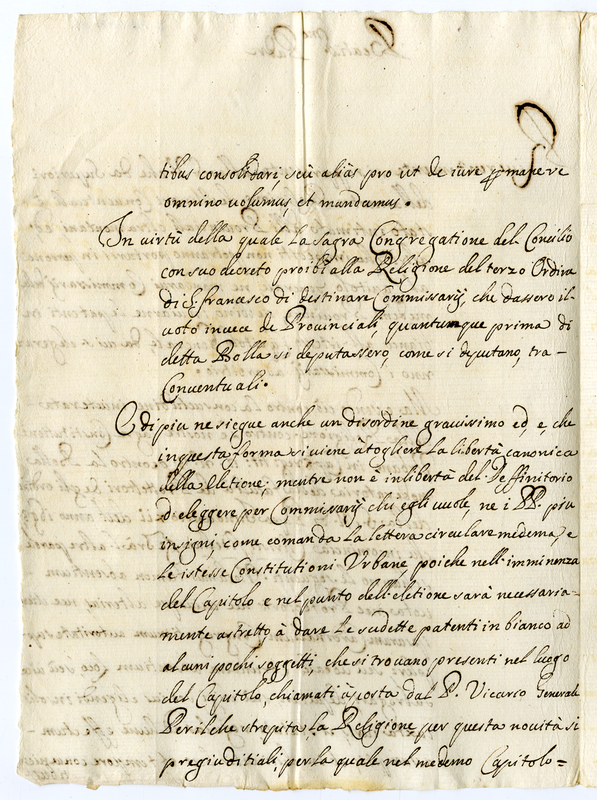 tibus consolidari, seù aliàs pro ut de iure permanere
omnino volumus, et mandamus.
In virtù della quale La Sagra Congregatione del Concilio
con suo decreto proibì alla Religione del terzo Ordine
di S. francesco di destinare Commissarij, che dassero il
voto invece de Provinciali, quantunque prima di
detta Bolla si deputassero, come si deputano, tra
Conventuali.
E di piu ne siegue anche un disordine gravissimo ed, e, che
in questa forma si viene à togliere La libertà canonica
della eletione; mentre non è in libertà del Deffinitorio
d'eleggere per Commissarij chi egli vuole, ne i PP. piu
insigni, come comanda La lettera circulare medema, e
Le istesse Constitutioni Urbane, poiche nell'imminenza
del Capitolo e nel punto dell'eletione sarà necessaria-
mente astretto à dare Le sudette patenti in bianco ad
alcuni pochi soggetti, che si trovano presenti nel luogo
del Capitolo, chiamati à posta dal P. Vicario Generale
Per il che strepita La Religione, per questa novità si
pregiuditiali, per la quale nel medemo Capitolo=